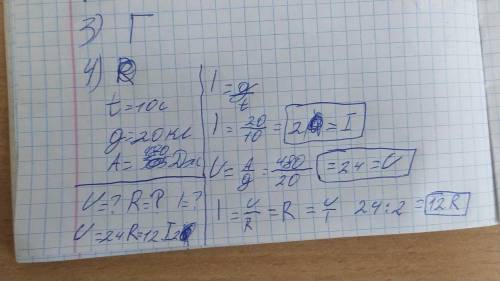 3) Г
4) R
t=10с
g=20Кл
A=480Дж
U=? R=? I=?
U=24 R=12 I=2
I=g/t
I=20/10=2=I
U=A/g=480/20=24=U
I=U/R=R=U/I 24:2=12R